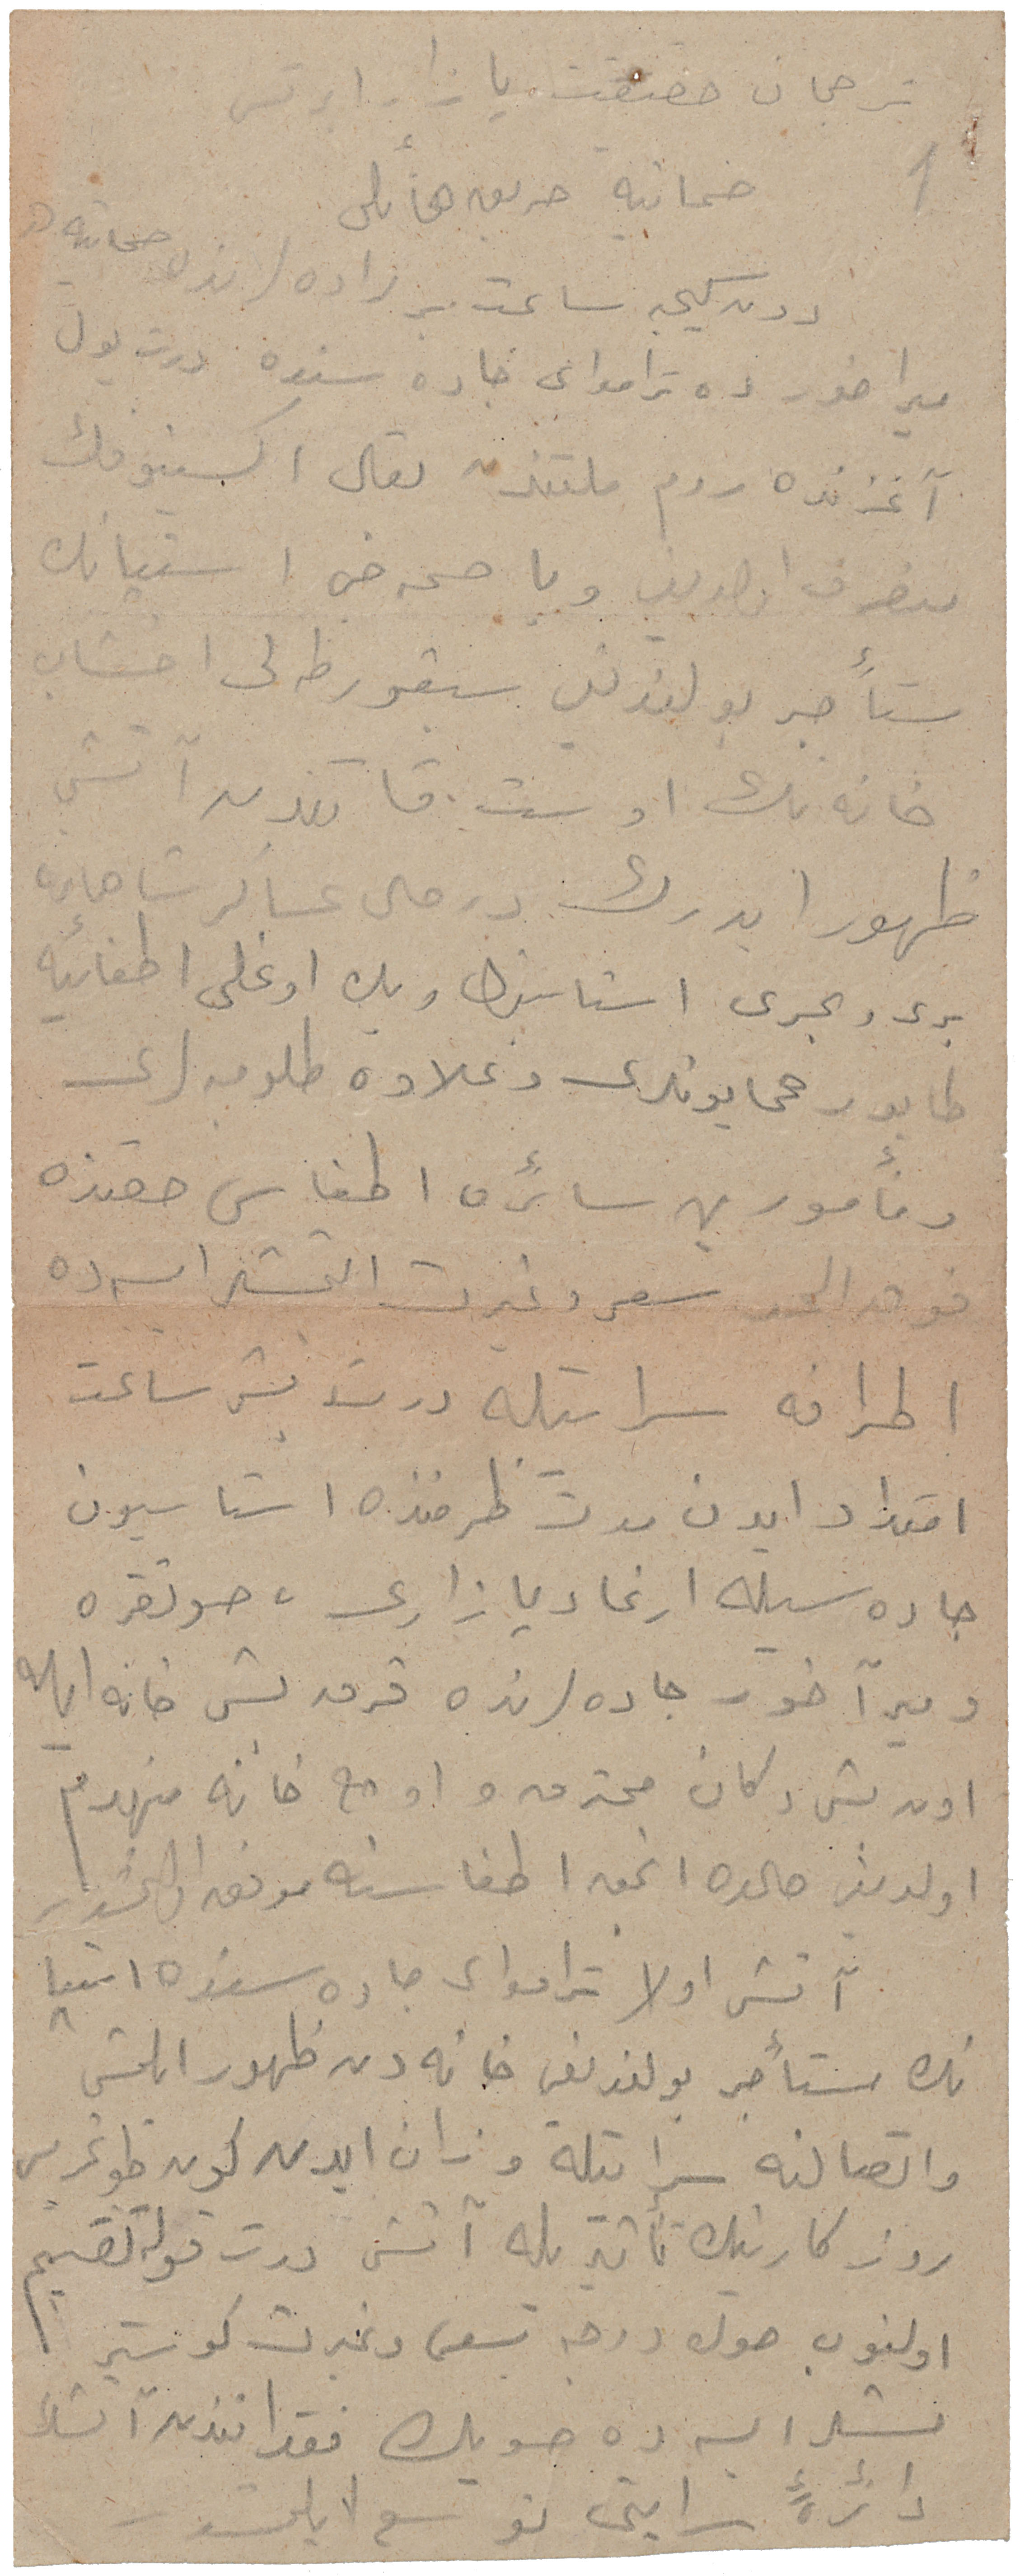 ترجمان حقیقت یازار ایرتسی
1
صماتیه حریق هائلی
دون گیجه ساعت بر راده لرنده صماتیه ده
میراخور ده تراموای جاده سنده درت یول
آغزنده روم ملتندن بقال اکسینوفك
متصرف اولدیغی و استپانك
مستأجر بولندیغی سیغورطه لی اخشاب
خانه نك اوست قاتندن آتش
ظهور ایدرك درحال عساکر شاهانه
بری و بحری استانبول و بك اوغلی اطفائیه
طابور همایونلری و علاوه طلومبه لری
و مأمورین سائره اطفاسی حقنده
فوق الحد سعی و غیرت ایتمشلر ایسه ده
اطرافه سرایتله درت بش ساعت
امتداد ایدن مدت ظرفنده استاسیون
جاده سیله ارغاد پازاری، صو
و میرآخور جاده لرنده قرق بش خانه ایله
اون بش دکان محترق و اوچ خانه منهدم
اولدیغی حالده انجق اطفاسنه موفق اولنمشدر
آتش اولا تراموای جاده سنده استپا
نك مستأجر بولندیغی خانه دن ظهور ایلمش
و اتصالنه سرایتله وزان ایدن گون طوغریسی
روزکارینك تأثیریله آتش درت قوله تقسیم
اولنوب صوك درجه سعی و غیرت کوستر
مشلر ایسه ده صویك فقدانندن آتشك
دائرهٔ سرایتی توسع ایلمشدر